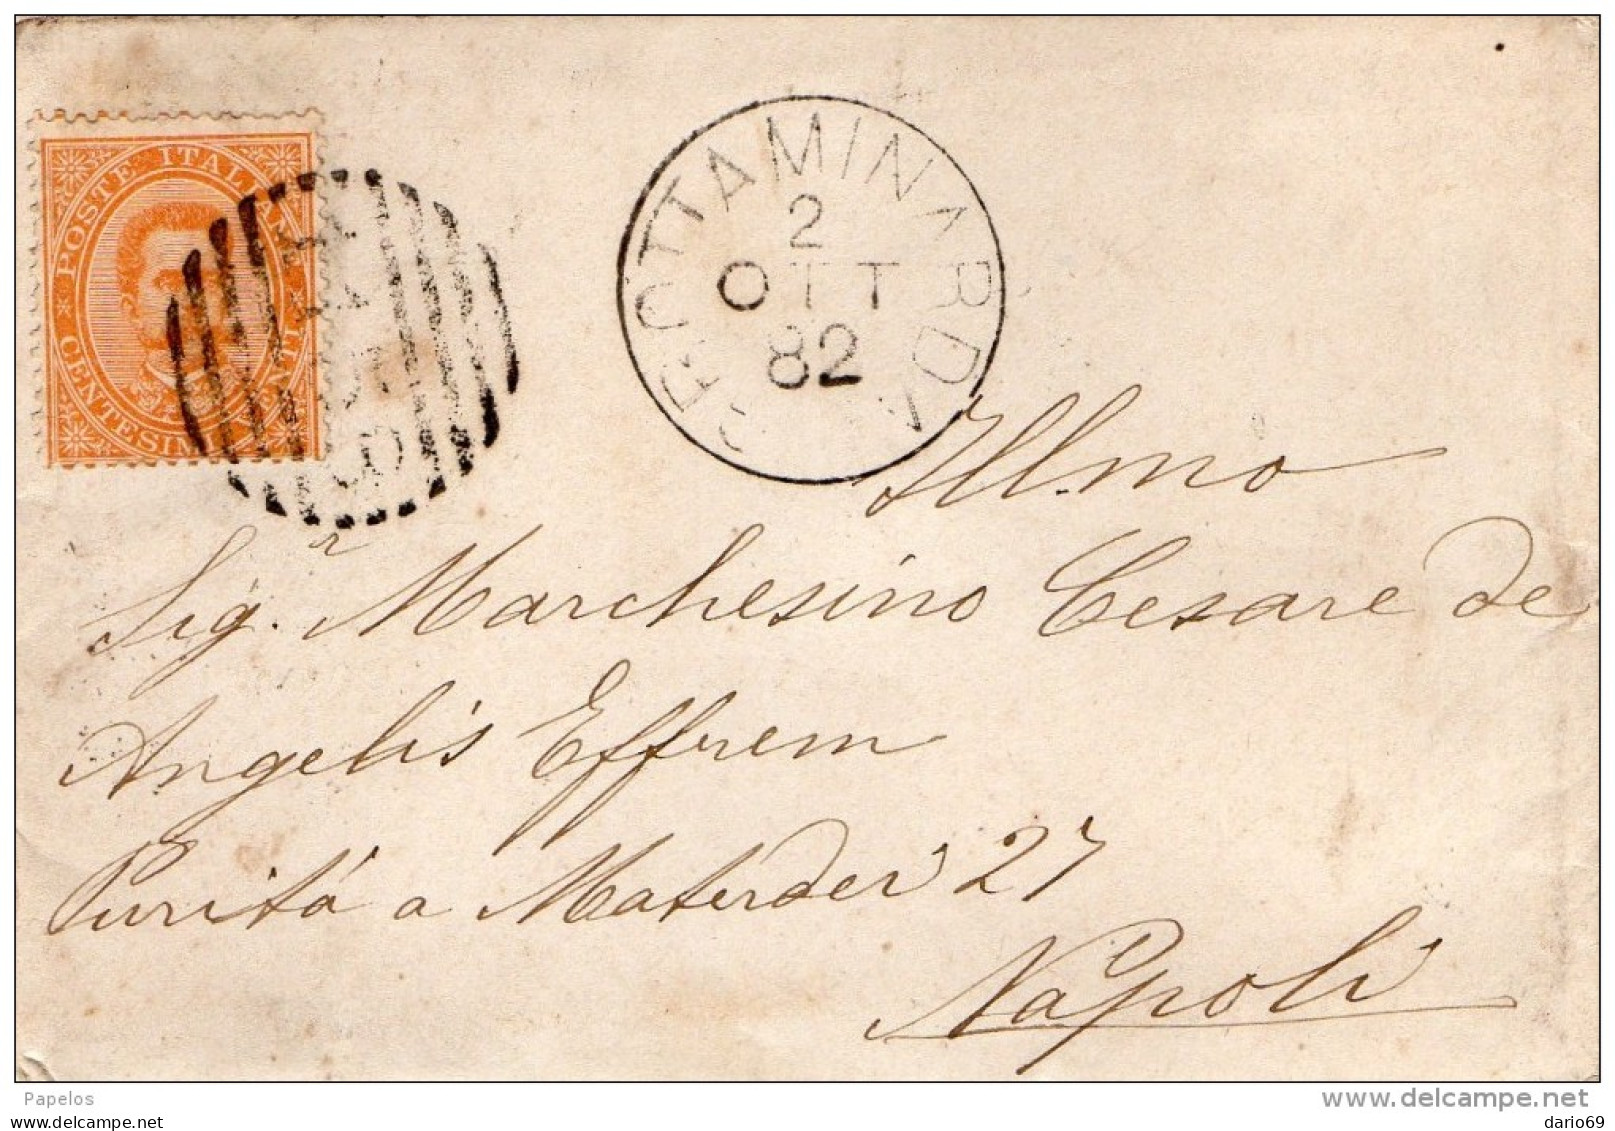 POSTE ITALIANE
CENTESIMI VENTI
GROTTAMINARDA
2
OTT
82
Illmo
Sig.r Marchesino Cesare de
Angelis Effrem
Puritá a Materdei 27
Napoli
Papelos
www.delcampe.net
dario69